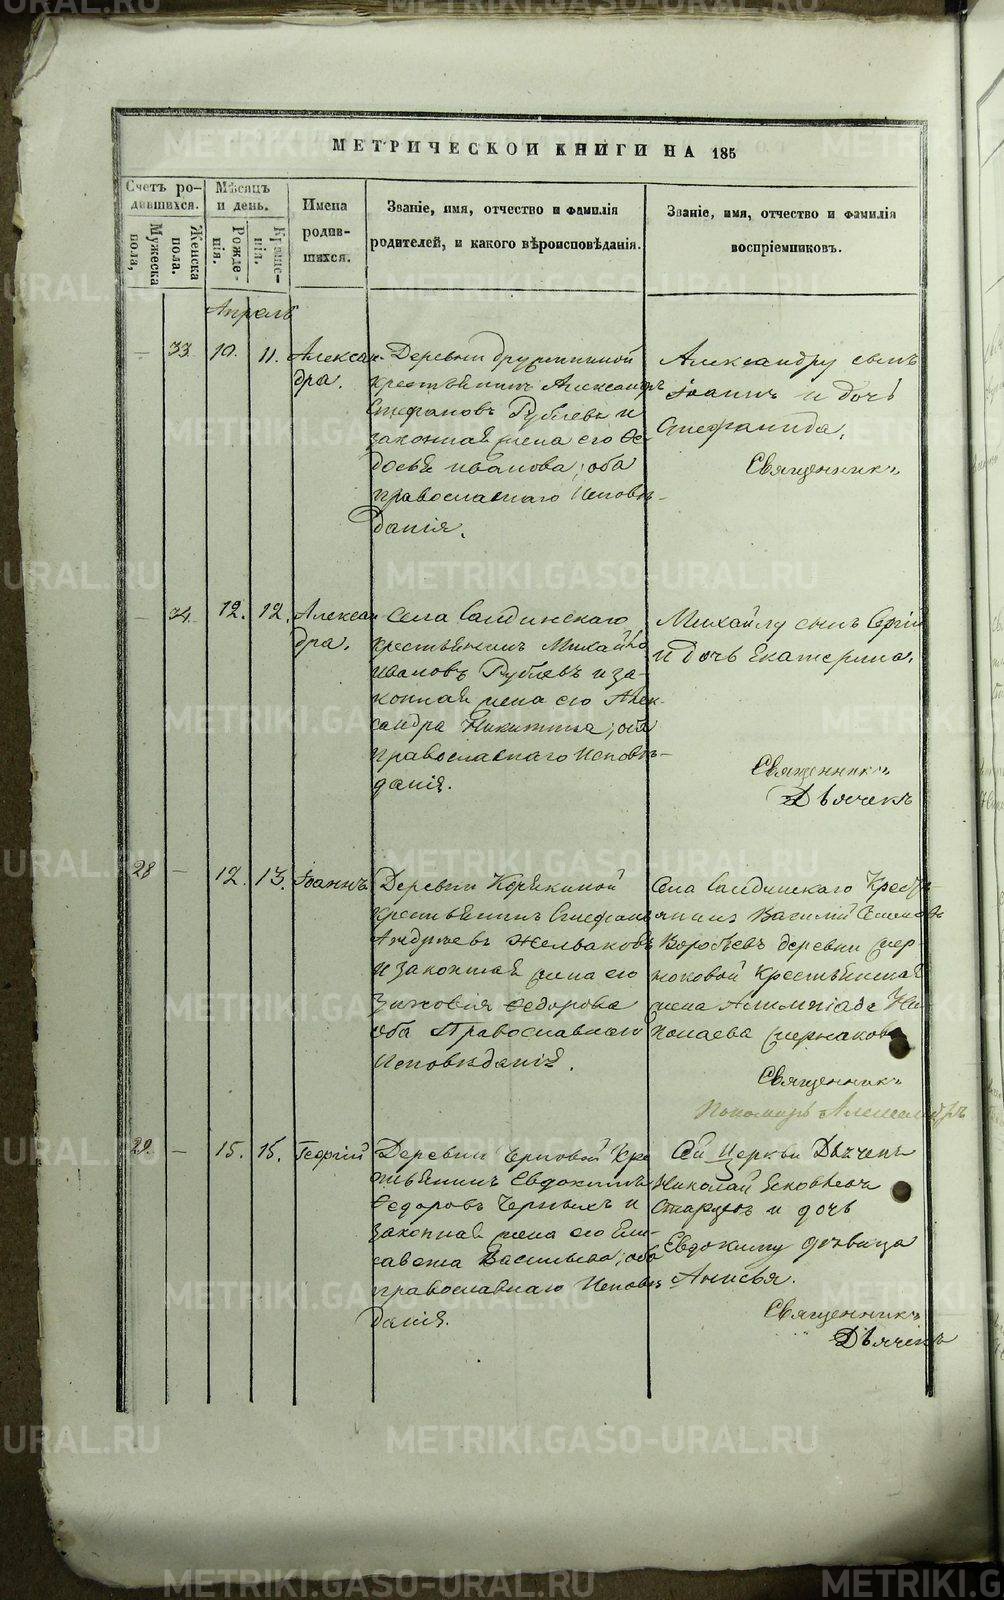 МЕТРИЧЕСКОЙ КНИГИ НА 185
Счетъ ро-
дившихся.
Мужеска
пола,
Женска
пола.
Мѣсяцъ
и день.
Рожде-
нія.
Креще-
нія.
Имена
родив-
шихся.
Званіе, имя, отчество и фамилія
родителей, и какого вѣроисповѣданія.
Званіе, имя, отчество и фамилія
воспріемниковъ.
Апрель
— 33. 10. 11. Алексан-
дра.
Деревни Дружининой
крестьянинъ Александръ
Стефановъ Рублевъ и
законная жена его Ѳе-
досья Иванова; оба
православнаго исповѣ-
данія.
Александру сынъ
Іоаннъ и дочь
Стефанида.
Священникъ
— 34. 12. 12. Алексан
дра.
Села Салдинскаго
крестьянинъ Михайло
Ивановъ Рублевъ и за-
конная жена его Алек-
сандра Никитина; оба
православнаго исповѣ-
данія.
Михайлу сынъ Сергій
и дочь Екатерина.
Священникъ
Дьячекъ
28 — 12. 13. Іоаннъ
Деревни Корякиной
крестьянинъ Стефанъ
Андреевъ Желваковъ
и законная жена его
Зиновія Ѳедорова
оба Православнаго
Исповѣданія.
Села Салдинскаго Крестъ-
янинъ Василій Семеновъ
Воробьевъ деревни
крестьянская
жена
Священникъ
Пономарь Александръ
29. — 15. 15. Георгій
Деревни Черновой Кре
стьянинъ Евдокимъ
Ѳедоровъ Черныхъ и
законная жена его Ели-
савета Васильева; оба
православнаго Исповѣ
данія.
Сей Церкви Дьячекъ
Николай Яковлевъ
Старцевъ и дочь
Евдокиму дѣвица
Анисья.
Священникъ
Дьячекъ
METRIKI.GASO-URAL.RU